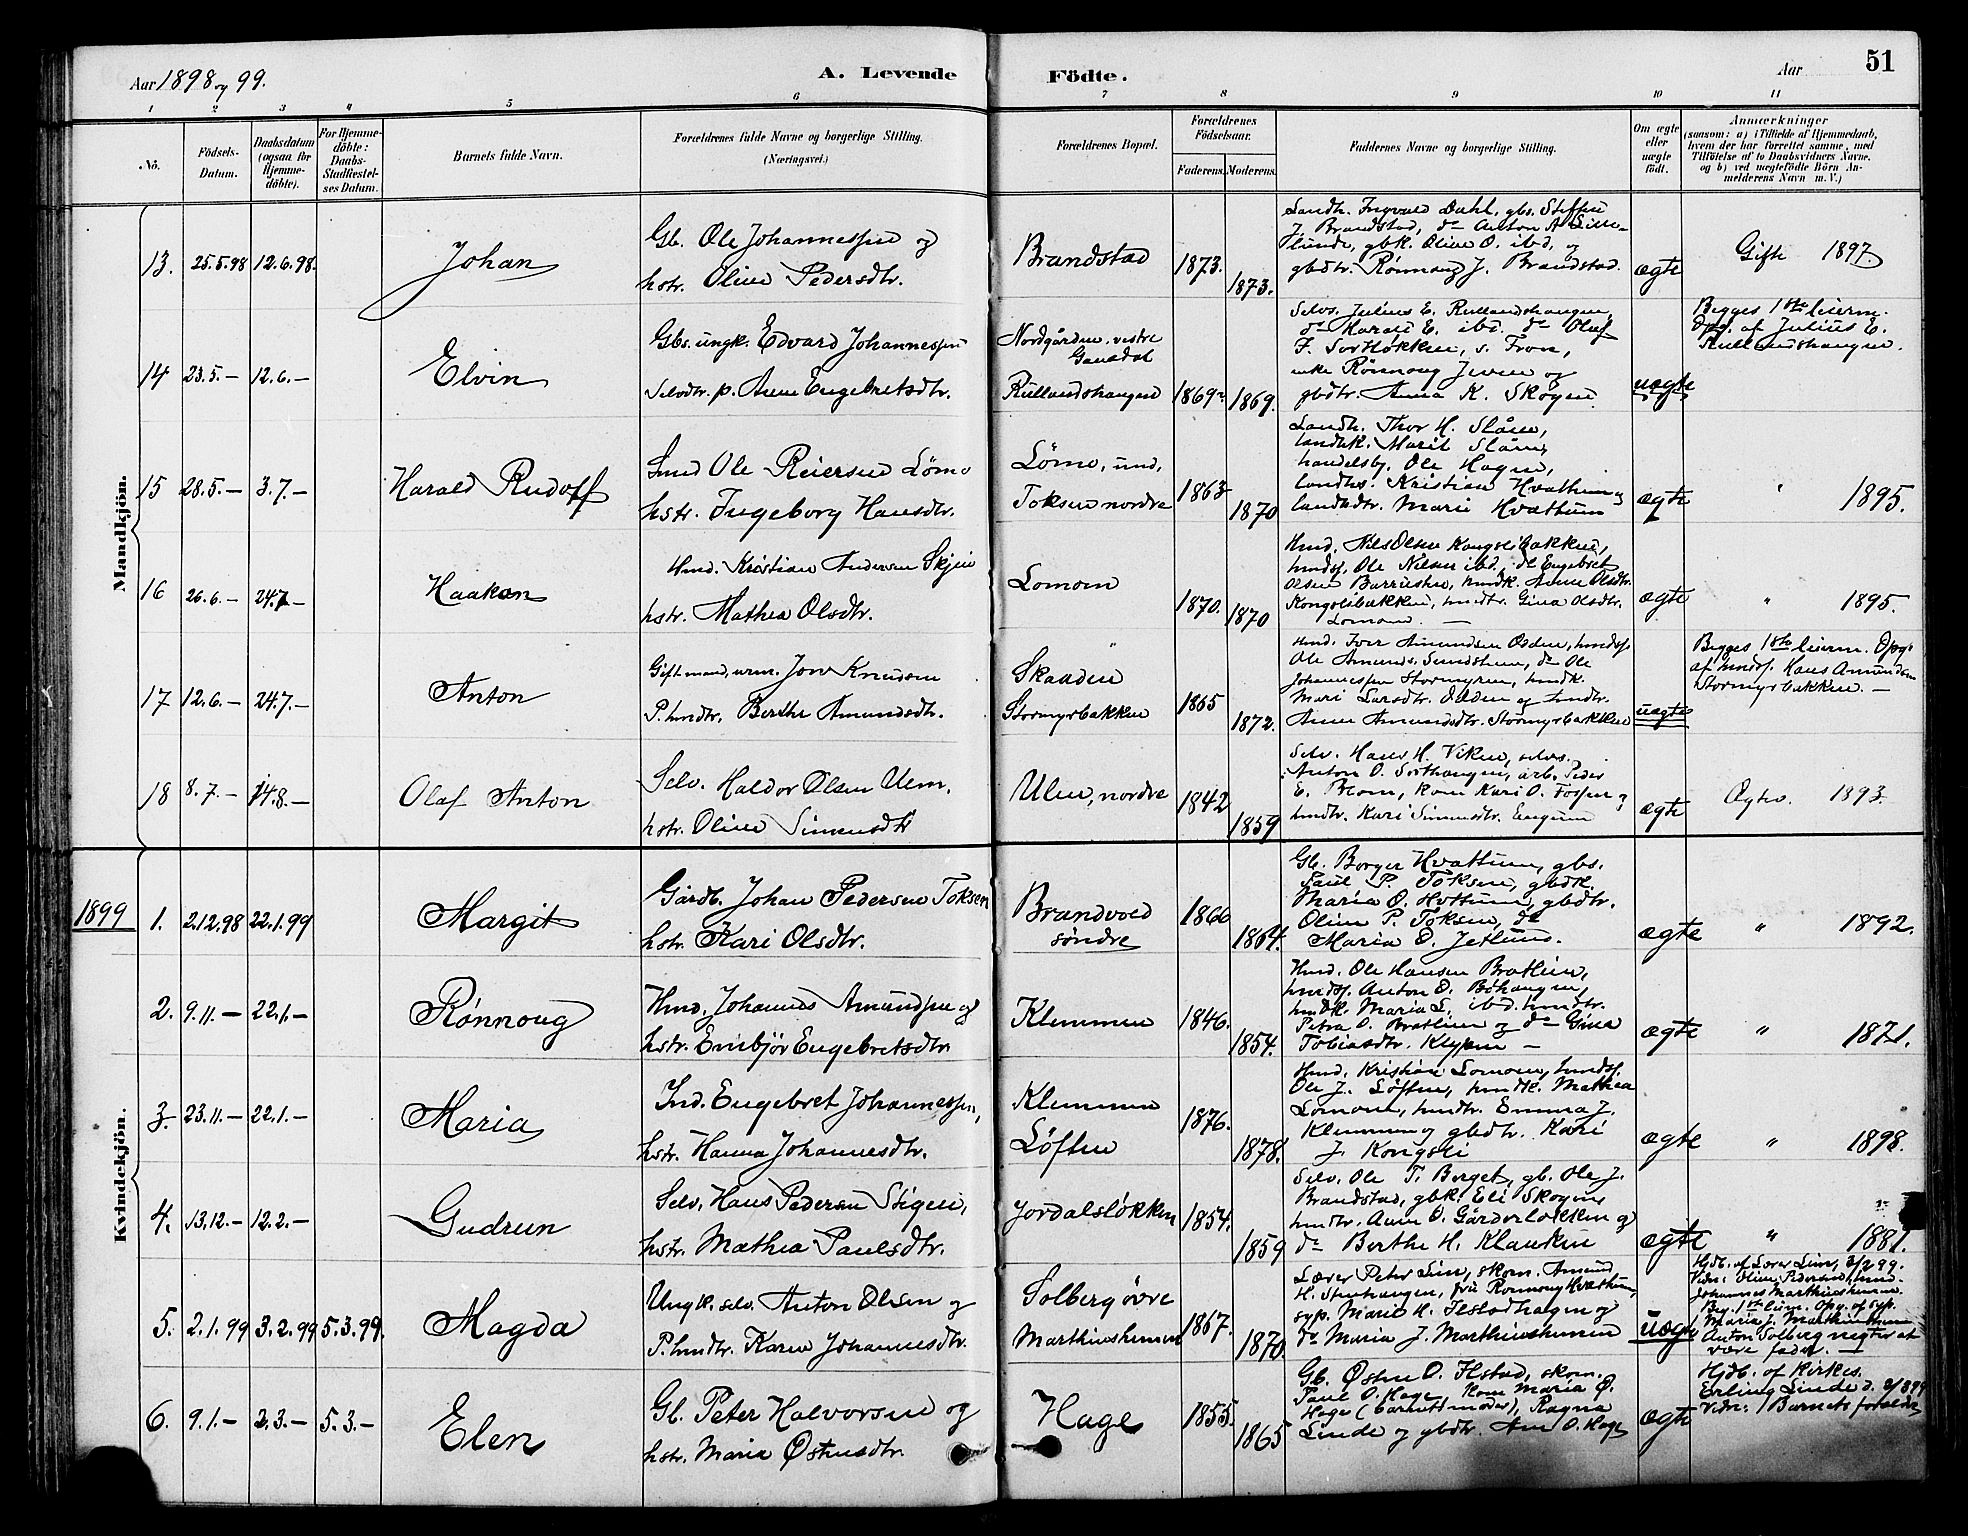 Aar 1898 og 99.
A. Levende Födte.
Aar
51
1 2 3 4 5 6 7 8 9 10 11
No.
Födsels-Datum.
Daabsdatum (ogsaa for Hjemme-döbte).
For Hjemme-döbte: Daabs-Stadfæstel-ses Datum.
Barnets fulde Navn.
Forældrenes fulde Navne og borgerlige Stilling.
(Næringsvei.)
Forældrenes Bopæl.
Forældrenes Födselsaar.
Faderens. Moderens.
Faddernes Navne og borgerlige Stilling.
Om ægte eller uægte födt.
Anmærkninger
(saasom: a) i Tilfælde af Hjemmedaab,
hvem der har forrettet samme, med
Tilföielse af to Daabsvidners Navne,
og b) ved uægtefödte Börn An-
melderens Navn m. V.)
Mandkjön.
13. 25.5.98 12.6.98. Johan
Gb. Ole Johannessen og
hstr. Oline Pedersdtr.
Brandstad 1873. 1873.
Landh. Ingvald Dahl, gbs. Steffen
J. Brandstad, do Anton A Lille-
lunde, gbk. Oline O. ibd, og
gbdtr. Rønnaug J. Brandstad.
ægte
Gifte 1897
14 23.5.— 12.6.— Elvin
Gbs. ungk. Edvard Johannessen
Selvdtr. p. Anne Engebretsdtr.
Nordgården, vestre
Gausdal
Rullandshaugen 1869 1869.
Selvs. Julius E. Rullandshaugen,
do Harald E. ibd. do Olaf
F. Sortløkken, s. Fron,
enke Rønnoug Jevne og
gbdtr. Anna K. Skogen
uægte
Begges 1ste leierm.
Opg. af Julius E.
Rullandshaugen.
15 28.5.— 3.7.— Harald Rudolf
Smed Ole Reiersen Lømo
hstr. Ingeborg Hansdtr.
Lømo, und,
Toksen nordre 1863 1870
Landh. Thor H. Slåen,
landhk. Marit Slåen,
handelsbj. Ole Hagen,
landhs. Kristian Hvattum og
landhdtr. Marie Hvattum
ægte
" 1895.
16 26.6.— 24.7.— Haakon
Hmd. Kristian Andersen Skjei
hstr. Mathea Olsdtr.
Lomoen 1870. 1870
Hmd. Nils Olsen Kongslibakken,
hmdsf. Ole Nilsen ibd, do Engebret
Olsen Barrusten, hmdk. Anne Olsdtr.
Kongslibakken, hmdtr. Gina Olsdtr.
Lomoen. —
ægte
" 1895.
17 12.6.— 24.7.— Anton
Gift mand, urm. Jon Knudsen
P. hmdtr. Berthe Amundsdtr.
Skaaden
Stormyrbakken 1865 1872.
Hmd. Iver Amundsen Odden, hmdsf.
Ole Amunds. Sundheim, do Ole
Johannessen Stormyren, hmdk.
Mari Larsdtr. Odden og hmdtr.
Anne Amundsdtr. Stormyrbakken
uægte
Begges 1ste leierm. Opg.
af hmdsf. Hans Amundsen
Stormyrbakken. —
18 8.7.— 14.8.— Olaf Anton
Selv. Haldor Olsen Ulen,
hstr. Oline Simensdtr
Ulen, nordre 1842 1859
Selv. Hans H. Viken, selvs.
Anton O. Sorthaugen, arb. Peder
E. Blom, kone Kari O. Fossen og
hmdtr. Kari Simensdtr. Engum
ægte
Ægtev. 1893.
1899
Kvindekjön.
1. 2.12.98 22.1.99 Margit
Gårdb. Johan Pedersen Toksen
hstr. Kari Olsdtr.
Brandvold
søndre 1866 1864.
Gb. Borger Hvattum, gbs.
Paul P. Toksen, gbdk.
Maria O. Hvattum, gbdtr.
Oline P. Toksen, do
Maria O. Jetlund.
ægte
" 1892.
2. 9.11.— 22.1.— Rønnoug
Hmd. Johannes Amundsen og
hstr. Embjør Engebretsdtr.
Klemmen 1846. 1854.
Hmd. Ole Hansen Bratlien,
hmdsf. Anton O. Böhaugen,
hmdk. Maria L. ibd. hmdtr.
Petra O. Bratlien og do Gina
Tobiasdtr. Klypen —
ægte
" 1871.
3. 23.11.— 22.1.— Maria
Ind. Engebret Johannessen,
hstr. Hanna Johannesdtr.
Klemmen
Løften 1876. 1878.
Hmd. Kristian Lomoen, hmdsf.
Ole J. Løften, hmdk. Mathea
Lomoen, hmdtr. Emma J.
Klemmen og gbdtr. Kari
J. Kongsli
ægte
" 1898.
4. 13.12.— 12.2.— Gudrun
Selv. Hans Pedersen Stigen,
hstr. Mathea Paulsdtr.
Jordalsløkken 1854. 1859
Selv. Ole T. Berget, gb. Ole J.
Brandstad, gbk. Eli Skogen,
hmdtr. Anne O. Gårderløkken og
do Berthe H. Klauken
ægte
" 1881.
5. 2.1.99 3.2.99 5.3.99. Magda
Ungk. selv. Anton Olsen og
P. hmdtr. Karen Johannesdtr.
Solberg øvre
Marthinshemmen 1867. 1870.
Lærer Peter Lien, skom. Amund
H. Stenhaugen, frü Rønnoug Hvattum,
syp. Marie H. Ilstadhagen og
do Maria J. Marthinshemen
uægte
Hjdb. af Lærer Lien, 3/2 99.
Vidn: Oline Pedersen, hmd.
Johannes Marthinshemmen.
Beg. 1ste leierm. Opg. af syp.
Maria J. Marthinshemen
Anton Solberg negter at
være fader. —
6. 9.1.— 2.3.— 5.3.— Elen
Gb. Peter Halvorsen og
hstr. Maria Østensdtr.
Hage 1855. 1865
Gb. Østen O. Ilstad, skom.
Paul O. Hage, kone Maria Ø.
Hage (barnets moder), Ragna
Linde og gbdtr. Ane O. Hage
ægte
Hjdb. af Kirkes.
Erling Linde d. 2/3 99
Vidn: Barnets forældre